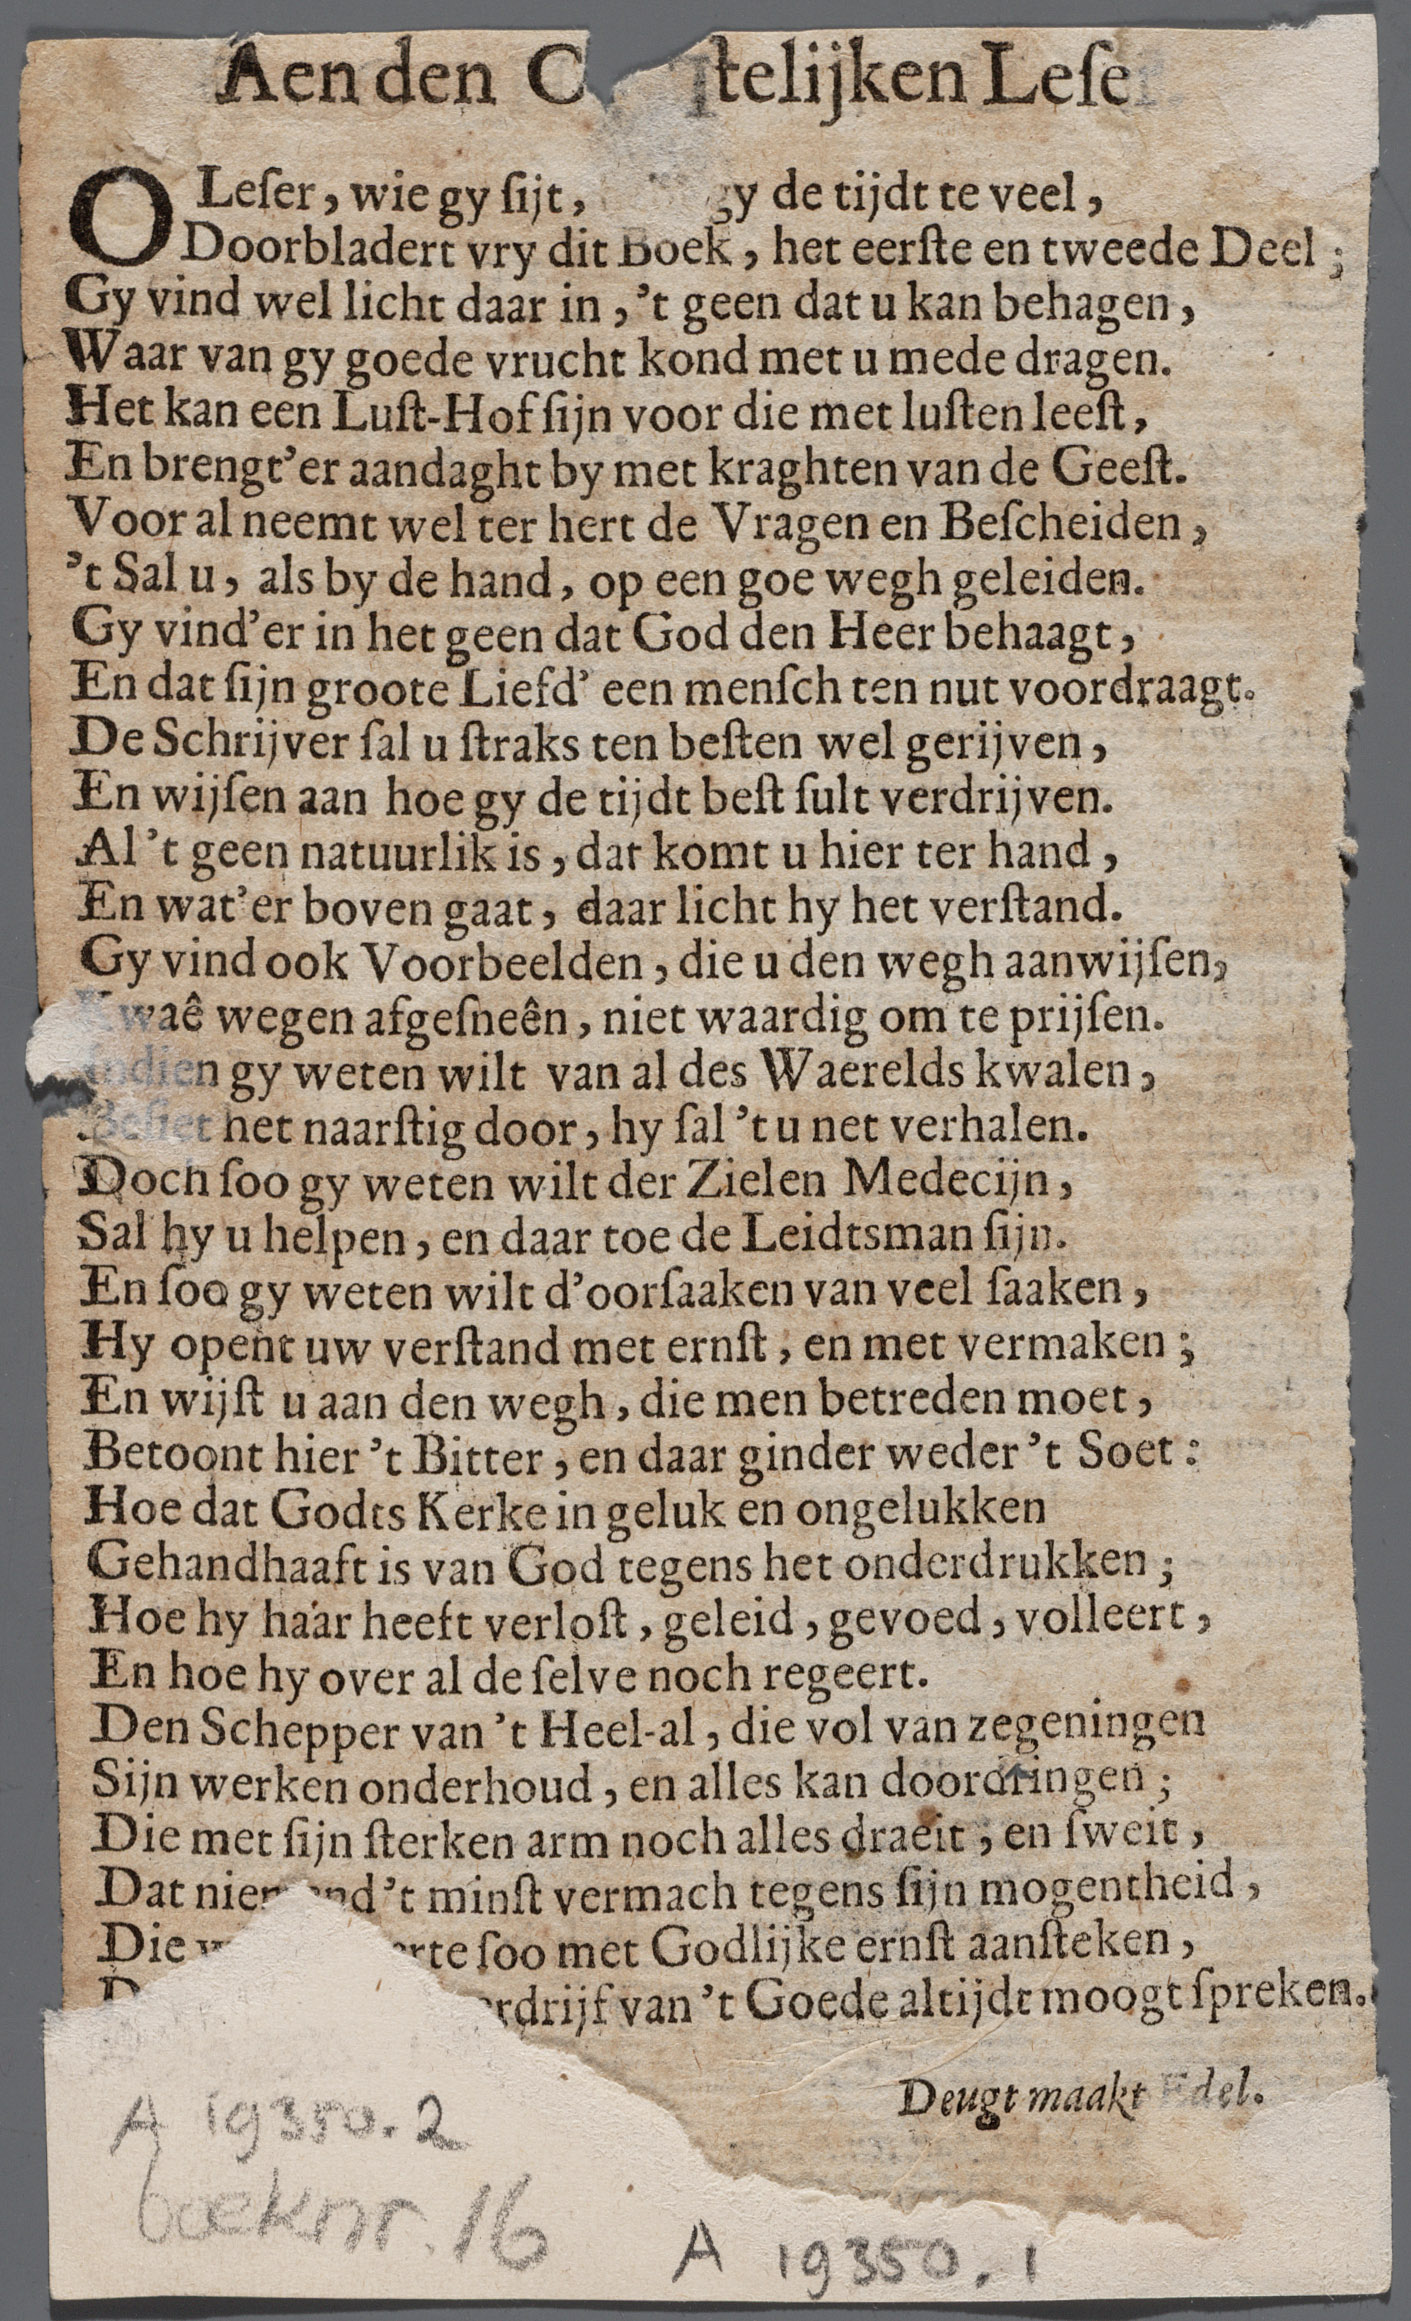 Aen den telijken Leſe
O Leſer, wie gy ſijt, gy de tijdt te veel,
Doorbladert vry dit Boek, het eerſte en tweede Deel;
Gy vind wel licht daar in, 't geen dat u kan behagen,
Waar van gy goede vrucht kond met u mede dragen.
Het kan een Luſt-Hof ſijn voor die met luſten leeſt,
En brengt'er aandaght by met kraghten van de Geeſt.
Voor al neemt wel ter hert de Vragen en Beſcheiden,
't Sal u, als by de hand, op een goe wegh geleiden.
Gy vind'er in het geen dat God den Heer behaagt,
En dat ſijn groote Liefd' een menſch ten nut voordraagt.
De Schrijver ſal u ſtraks ten beſten wel gerijven,
En wijſen aan hoe gy de tijdt beſt ſult verdrijven.
Al 't geen natuurlik is, dat komt u hier ter hand,
En wat'er boven gaat, daar licht hy het verſtand.
Gy vind ook Voorbeelden, die u den wegh aanwijſen,
Kwaê wegen afgeſneên, niet waardig om te prijſen.
Indien gy weten wilt van al des Waerelds kwalen,
Beſiet het naarſtig door, hy ſal 't u net verhalen.
Doch ſoo gy weten wilt der Zielen Medecijn,
Sal hy u helpen, en daar toe de Leidtsman ſijn.
En ſoo gy weten wilt d'oorſaaken van veel ſaaken,
Hy opent uw verſtand met ernſt, en met vermaken;
En wijſt u aan den wegh, die men betreden moet,
Betoont hier 't Bitter, en daar ginder weder 't Soet:
Hoe dat Godts Kerke in geluk en ongelukken
Gehandhaaft is van God tegens het onderdrukken;
Hoe hy haar heeft verloſt, geleid, gevoed, volleert,
En hoe hy over al de ſelve noch regeert.
Den Schepper van 't Heel-al, die vol van zegeningen
Sijn werken onderhoud, en alles kan doordringen;
Die met ſijn ſterken arm noch alles draeit, en ſweit,
Dat niemand 't minſt vermach tegens ſijn mogentheid,
Die rte ſoo met Godlijke ernſt aanſteken,
rdrijf van 't Goede altijdt moogt ſpreken.
Deugt maakt Edel.
A 19350.2
boeknr. 16
A 19350.1